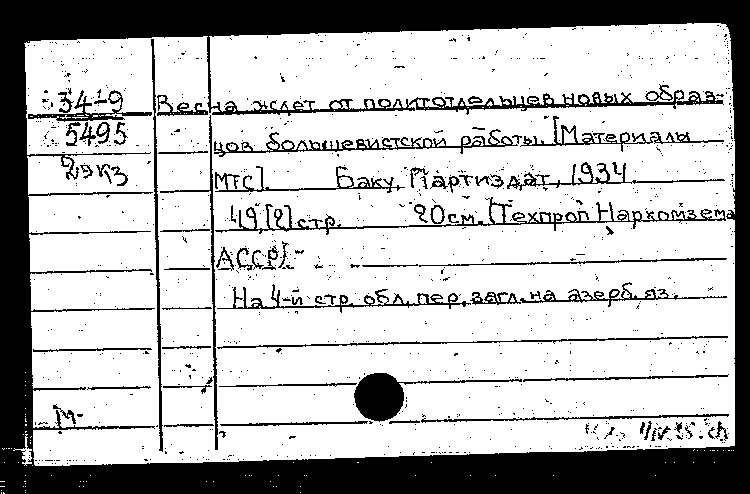 34-9 Весна ждет от политотдельцев новых образ-
5495 цов большевистской работы. [Материалы
2экз МТС]. Баку, Партиздат, 1934.
49,[2]стр. 20см. (Техпроп Наркомзема
АССР).-
На 4-й стр. обл. пер. загл. на азерб. яз.
М-